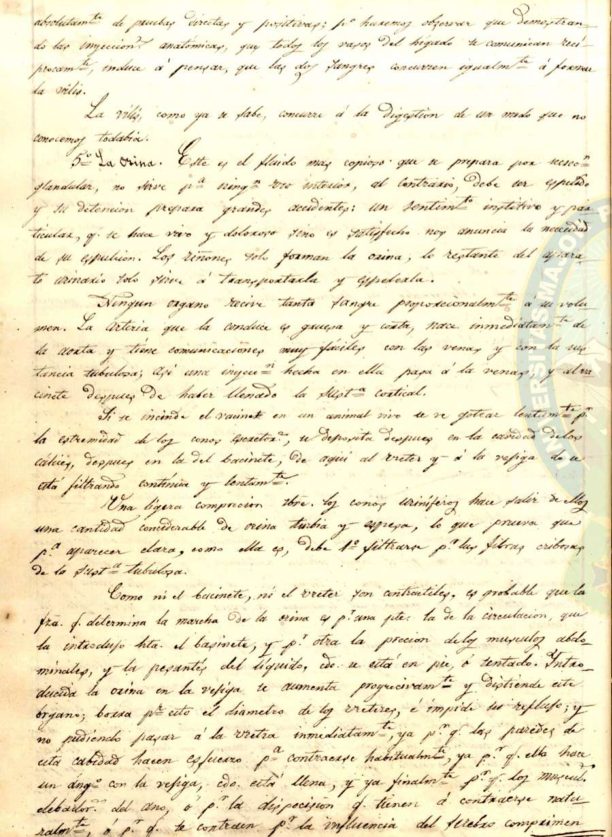 absolutam.te de pruebas directas y positivas; p.o haremos observar que demostran-
do las inyeccion.s anatómicas, que todos los vasos del higado se comunican reci-
procam.te, induce á pensar, que las dos sangres concurren igualm.te á formar
la vilis.
La vilis, como ya se sabe, concurre á la digestion de un modo que no
conocemos todabia.
5.o La orina. Este es el fluido mas copioso que se prepara por secrec.n
glandular, no sirve p.a ning.n uso interior, al contrario, debe ser espulsado
y su detencion prepara grandes accidentes: un sentim.to instintivo y par-
ticular, q.e se hace vivo y doloroso sino es satisfecho nos anuncia la necesidad
de su espulsion. Los riñones solo forman la orina, lo restante del apara-
to urinario solo sirve á transportarla y espelerla.
Ningun organo recive tanta sangre proporcionalm.te á su volu-
men. La arteria que la conduce es gruesa y corta, nace inmediatam.te de
la aorta y tiene comunicaciones muy fáciles con las venas y con la sus-
tancia tubulosa; asi una inyecc.n hecha en ella pasa á la venas, y al va-
cinete despues de haber llenado la sust.a cortical.
Si se incinde el vacinet en un animal vivo se ve gotear lentam.te p.r
la estremidad de los conos, se deposita despues en la cavidad de los
cálices, despues en la del bacinete, de aqui al ureter y á la vefiga do se
está filtrando continua y lentam.te
Una ligera compresion sbre. los conos uriniferos hace salir de ellos
una cantidad considerable de orina turbia y espesa, lo que prueva que
p.a aparecer clara, como ella es, debe 1.o filtrarse p.r las fibras cribosas
de la sust.a tubulosa.
Como ni el bacinete, ni el ureter son contractiles, es probable que la
fza. q. determina la marcha de la orina es p.r una pte. la de la circulacion, que
la introdujo hta. el basinete, y p.r otra la precion de los musculos abdo-
minales, y la pesantés del liquido, cdo. se está en pie, ó sentado. Intro-
ducida la orina en la vefiga se aumenta progrecivam.te y distiende este
órgano; borra p.r esto el diametro de los ureteres, é impide su reflujo; y
no pudiendo pasar á la uretra inmediatam.te, ya p.r q. las paredes de
esta cabidad hacen esfuerzo p.a contraerse habitualm.te, ya p.r q. ella hace
un áng.o con la vefiga, cdo. está llena, y ya finalm.te p.r q. los muscul.
elevador.s del ano, ó p.r la disposicion q. tienen á contraerse natu-
ralm.te, ó p.r q. se contraen p.r la influencia del serebro comprimen